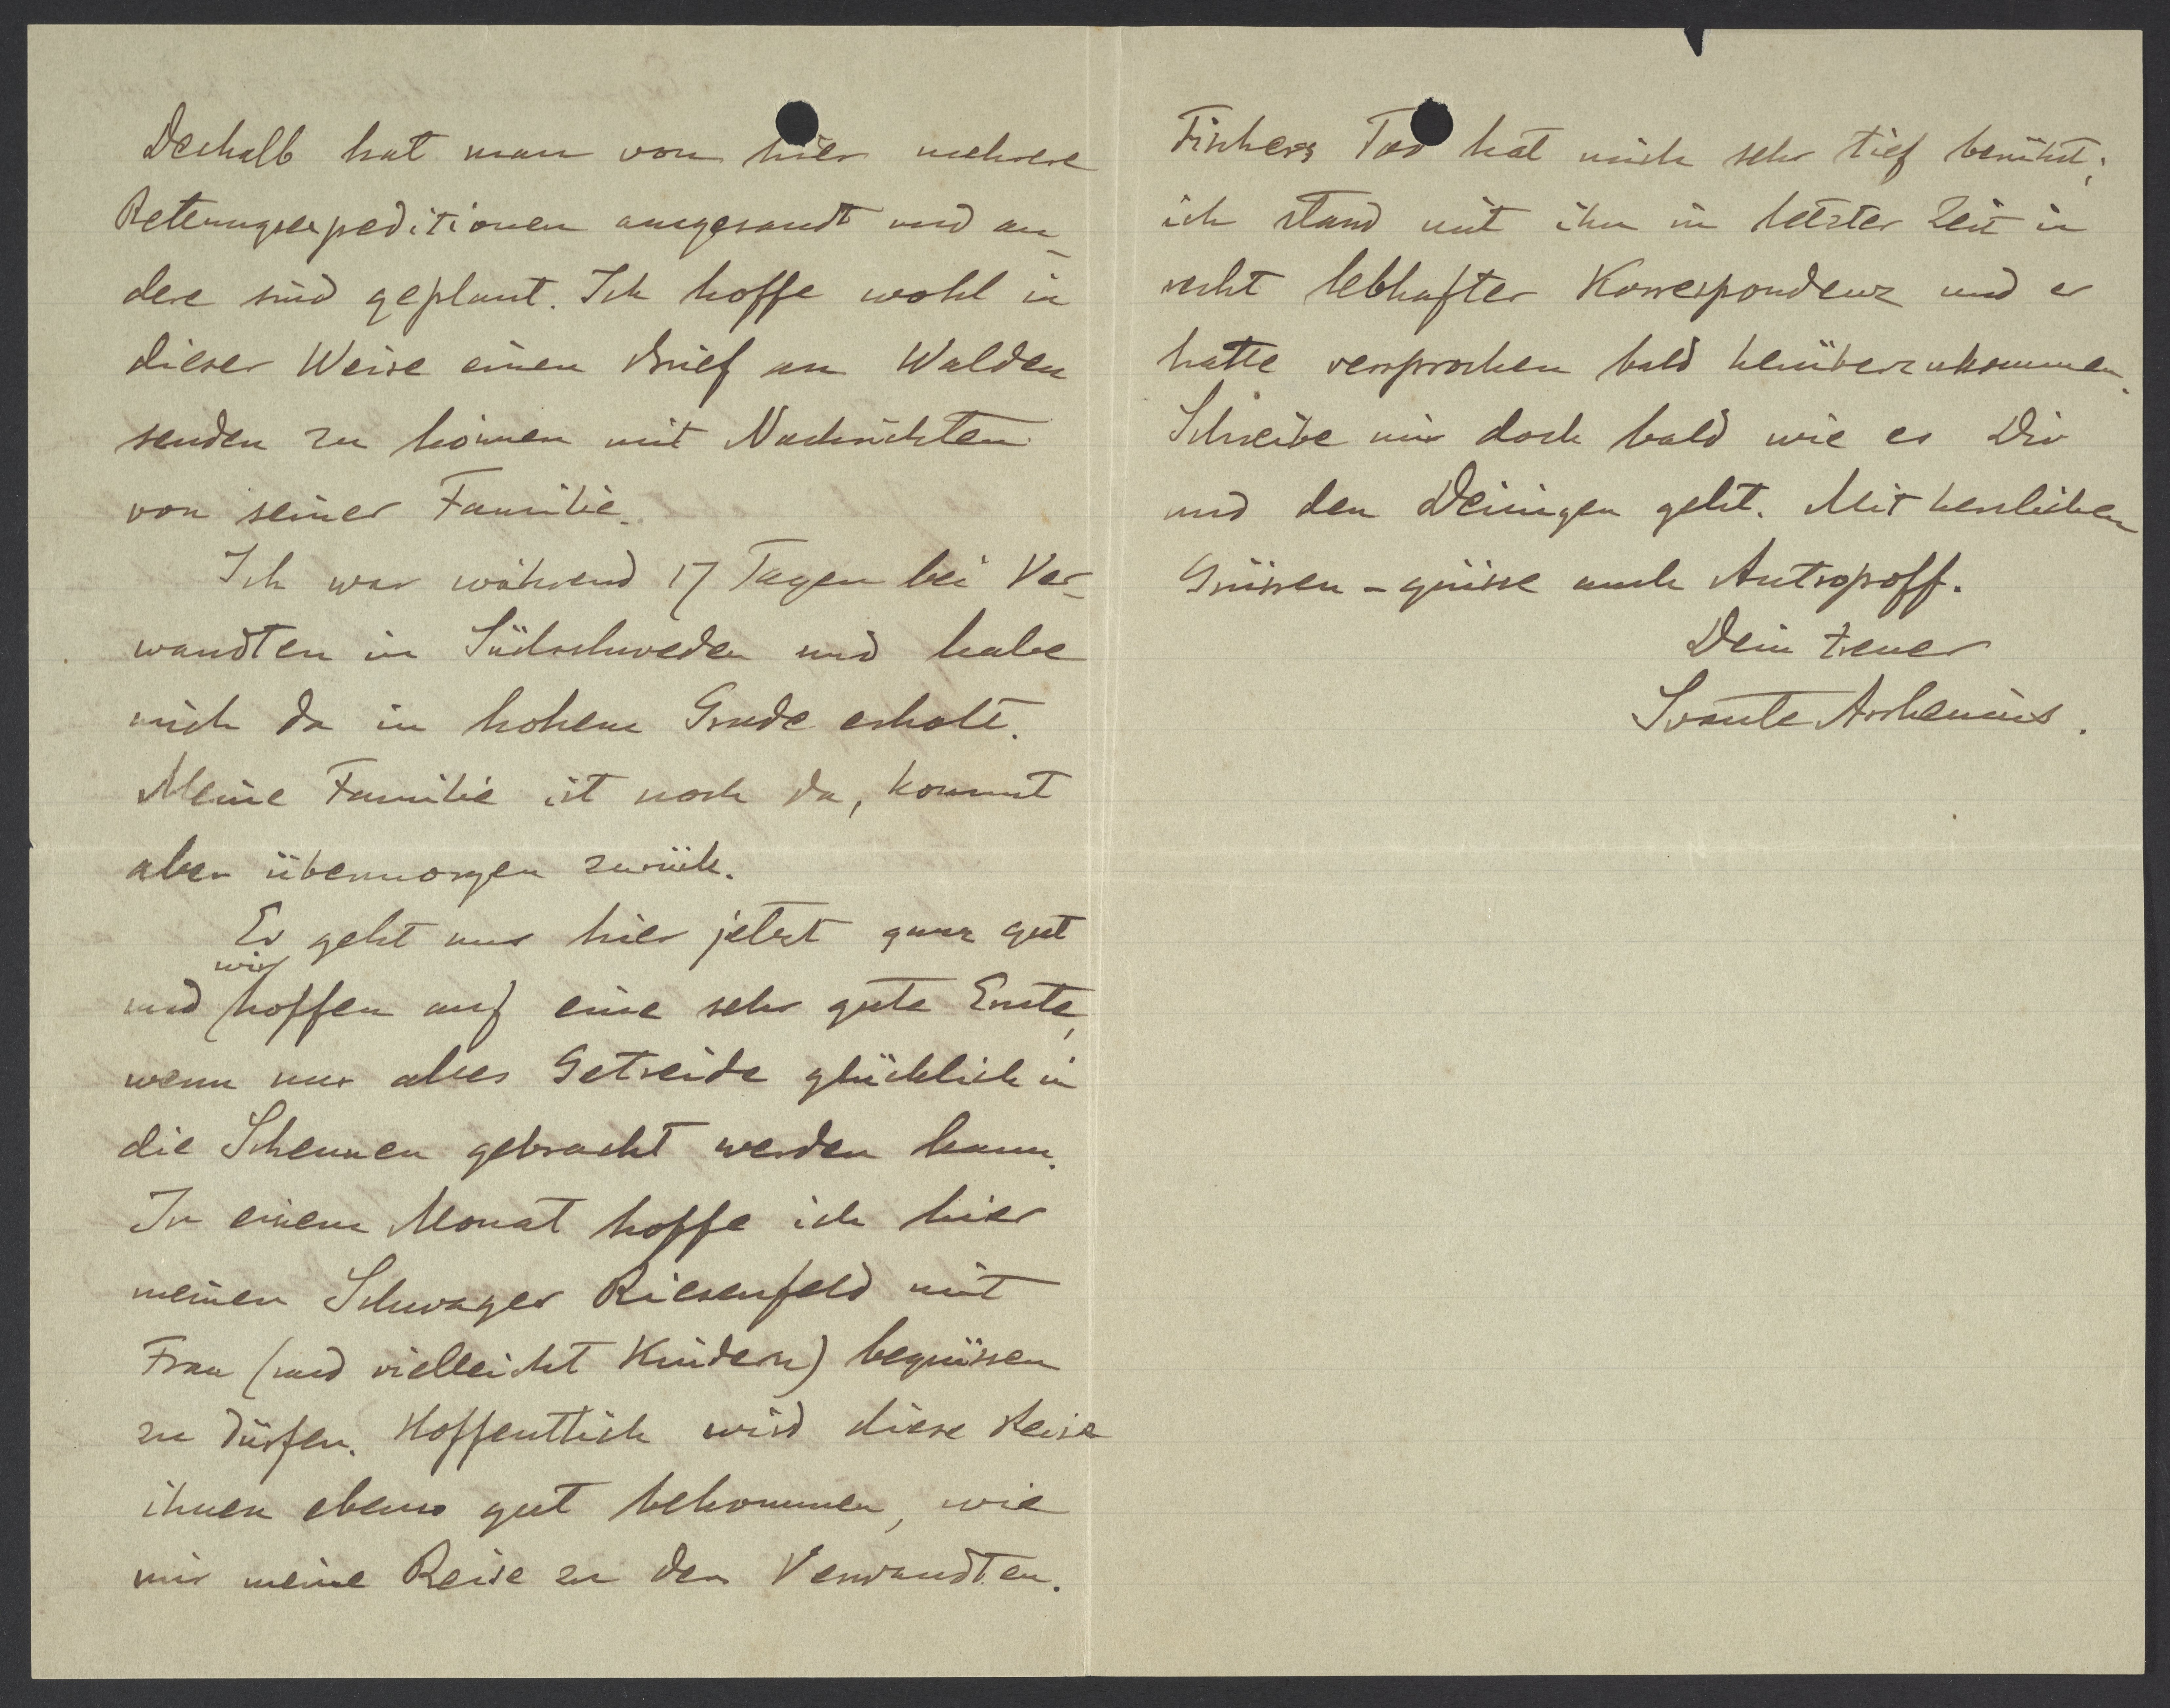 Deshalb hat man von hier mehrere
Rettungsexpeditionen ausgesandt und an-
dere sind geplant. Ich hoffe wohl in
dieser Weise einen Brief an Walden
senden zu können mit Nachrichten
von seiner Familie.
Ich war während 17 Tagen bei Ver-
wandten in Südschweden und habe
mich da in hohem Grade erholt.
Meine Familie ist noch da, kommt
aber übermorgen zurück.
Es geht uns hier jetzt ganz gut
und wir hoffen auf eine sehr gute Ernte,
wenn nur alles Getreide glücklich in
die Scheunen gebracht werden kann.
In einem Monat hoffe ich hier
meinen Schwager Riesenfeld mit
Frau (und vielleicht Kindern) begrüssen
zu dürfen. Hoffentlich wird diese Reise
ihnen ebenso gut bekommen, wie
mir meine Reise zu den Verwandten.
Fischers Tod hat mich sehr tief berührt;
ich stand mit ihm in letzter Zeit in
recht lebhafter Korrespondenz und er
hatte versprochen bald herüberzukommen.
Schreibe mir doch bald wie es Dir
und den Deinigen geht. Mit herzlichen
Grüssen - grüsse auch Antropoff.
Dein treuer
Svante Arrhenius.